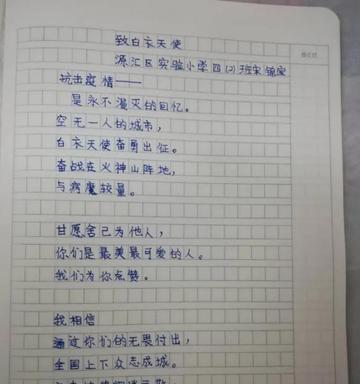 致白衣天使
源汇区实验小学四(2)班宋镜
抗击疫情——
是永不漫灭的回忆。
空无一人的城市，
白衣天使奋勇出征。
奋战在火神山阵地，
与病魔较量。
甘愿舍己为他人，
你们是最美最可爱的人。
我们为你点赞。
我相信
通过你们的无畏付出，
全国上下众志成城。